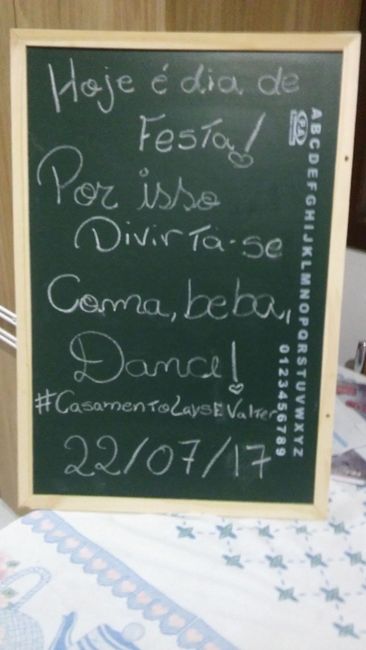 Hoje é dia de
Festa!
Por isso
Divirta-se
Coma, beba,
Dance!
#CasamentoLaysEValter
22/07/17
ABCDEFGHIJKLMNOPQRSTUVWXYZ
0123456789